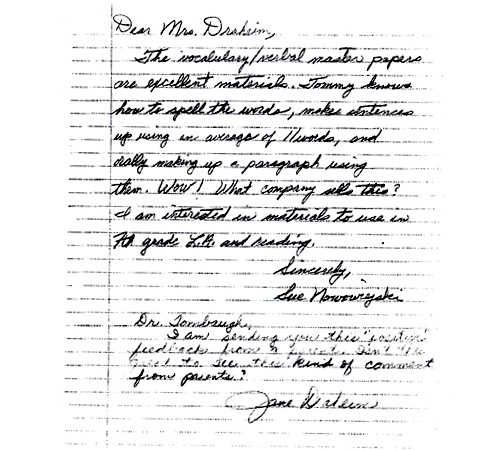 Dear Mrs. Draheim,
The vocabulary/verbal master papers
are excellent materials. Tommy knows
how to spell the words, makes sentences
up using an average of 11 words, and
orally making up a paragraph using
them. Wow! What company sells this?
I am interested in materials to use in
grade L.A. and reading.
Sincerely,
Sue Nowowiejski
Dr. Tombaugh,
I am sending you this "positive"
feedback from a parent. Isn't this
great to see this kind of comment
from parents?
Jane